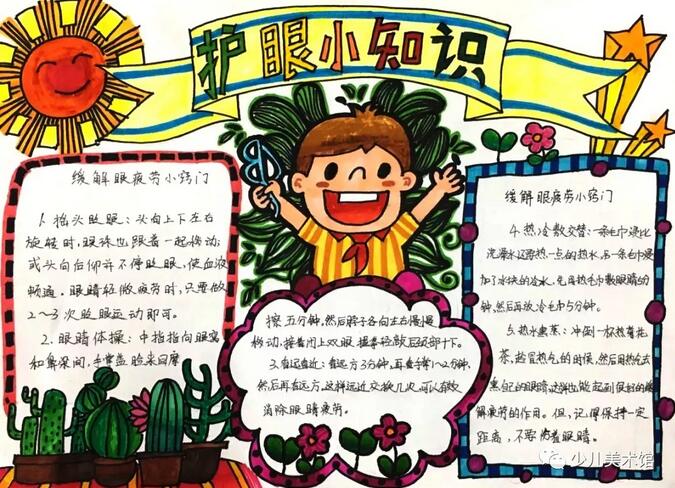 护眼小知识
缓解眼疲劳小窍门
1. 摇头眨眼：头向上下左右
旋转时，眼珠也跟着一起移动；
或头向后仰并不停眨眼，使血液
畅通。眼睛轻微疲劳时，只要做
2～3次眨眼运动即可。
2. 眼睛体操：中指指向眼窝
和鼻梁间，手掌盖脸来回摩
擦五分钟，然后脖子各向左右慢慢
移动，接着闭上双眼，握拳轻敲后颈部十下。
3. 看远看近：看远方3分钟，再看手掌1～2分钟，
然后再看远方，这样远近交换几次，可以有效
消除眼睛疲劳。
缓解眼疲劳小窍门
4. 热冷敷交替：一条毛巾浸比
洗澡水还要热一点的热水，另一条毛巾浸
加了冰块的冷水，先用热毛巾敷眼睛约5分
钟，然后再放冷毛巾5分钟。
5. 热水熏蒸：冲倒一杯热菊花
茶，趁冒热气的时候，然后用热气去
熏自己的眼睛，这样也能起到很好的缓
解疲劳的作用。但，记得保持一定
距离，不要伤着眼睛。
少儿美术馆